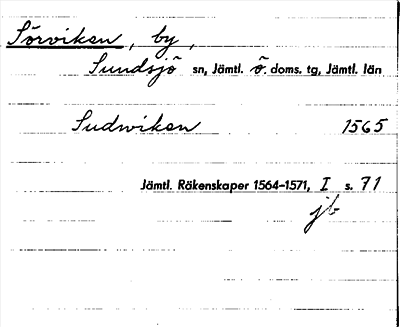 Sörviken, by,
Sundsjö sn, Jämtl. ö. doms. tg, Jämtl. län
Sudwiken 1565
Jämtl. Räkenskaper 1564–1571, I s. 71
jb